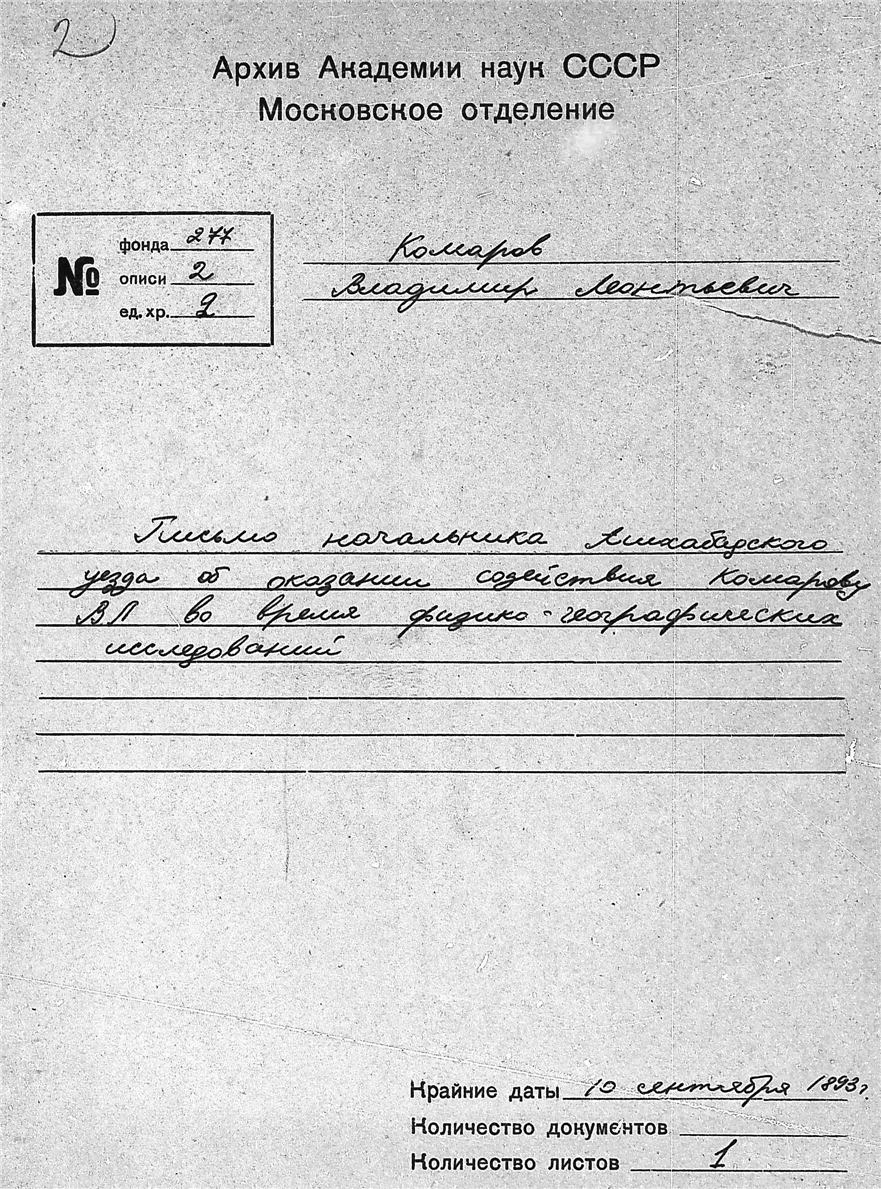 2
Архив Академии наук СССР
Московское отделение
№
фонда 277
описи 2
ед. хр. 2
Комаров
Владимир Леонтьевич
Письмо начальника Ашхабадского
уезда об оказании содействия Комарову
ВЛ во время физико-географических
исследований
Крайние даты 10 сентября 1893 г.
Количество документов
Количество листов 1